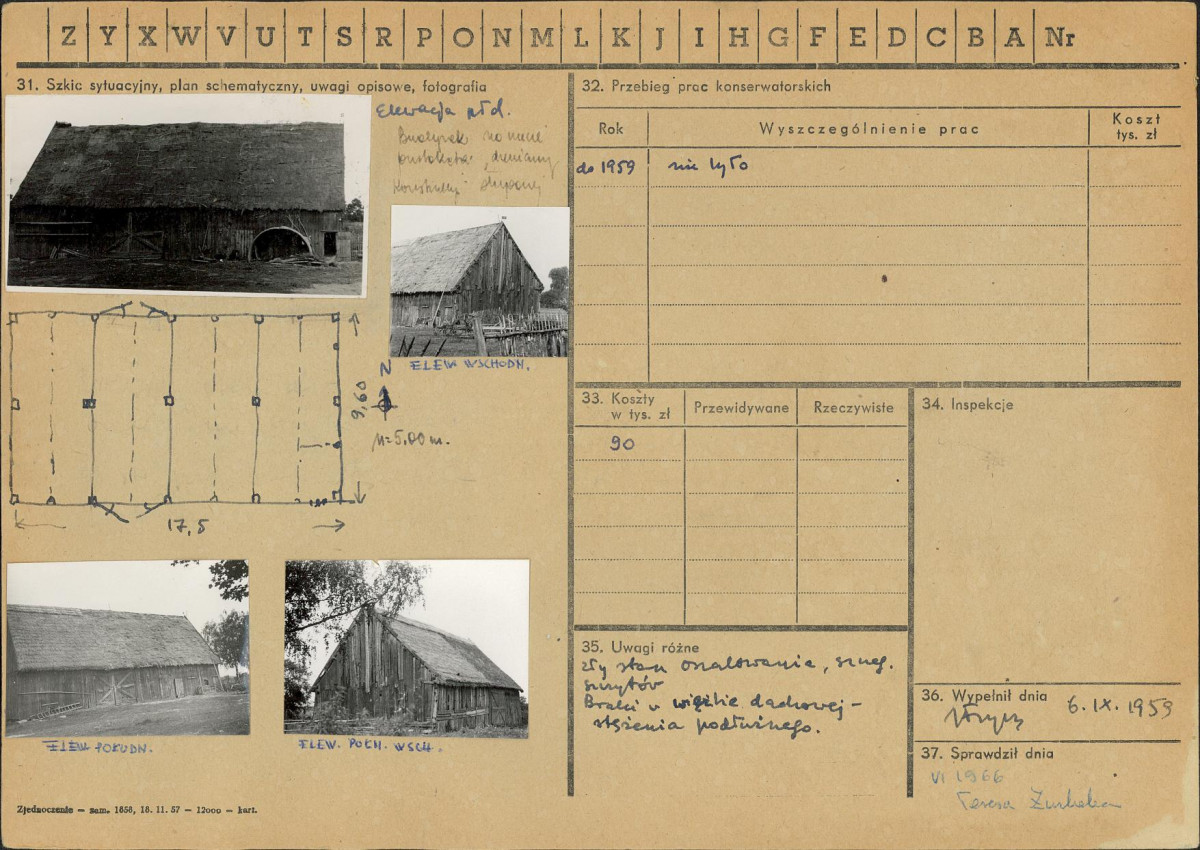 Z Y X W V U T S R P O N M L K J I H G F E D C B A Nr
31. Szkic sytuacyjny, plan schematyczny, uwagi opisowe, fotografia
Elewacja płd.
Budynek na rzucie
prostokąta, drewniany
Konstrukcji słupowej
ELEW WSCHODN.
N
9,60
H=5,00 m.
17,5
ELEW POŁUDN.
ELEW. POŁN. WSCH.
Zjednoczenie — zam. 1858, 18. 11. 57 — 12000 — kart.
32. Przebieg prac konserwatorskich
Rok
Wyszczególnienie prac
Koszt
tys. zł
do 1959 nie było
33. Koszty
w tys. zł
Przewidywane
Rzeczywiste
90
34. Inspekcje
35. Uwagi różne
zły stan oszalowania, szczeg.
szczytów
Braki w więźbie dachowej –
stężenia podłużnego.
36. Wypełnił dnia
6.IX.1959
37. Sprawdził dnia
VI 1966
Teresa